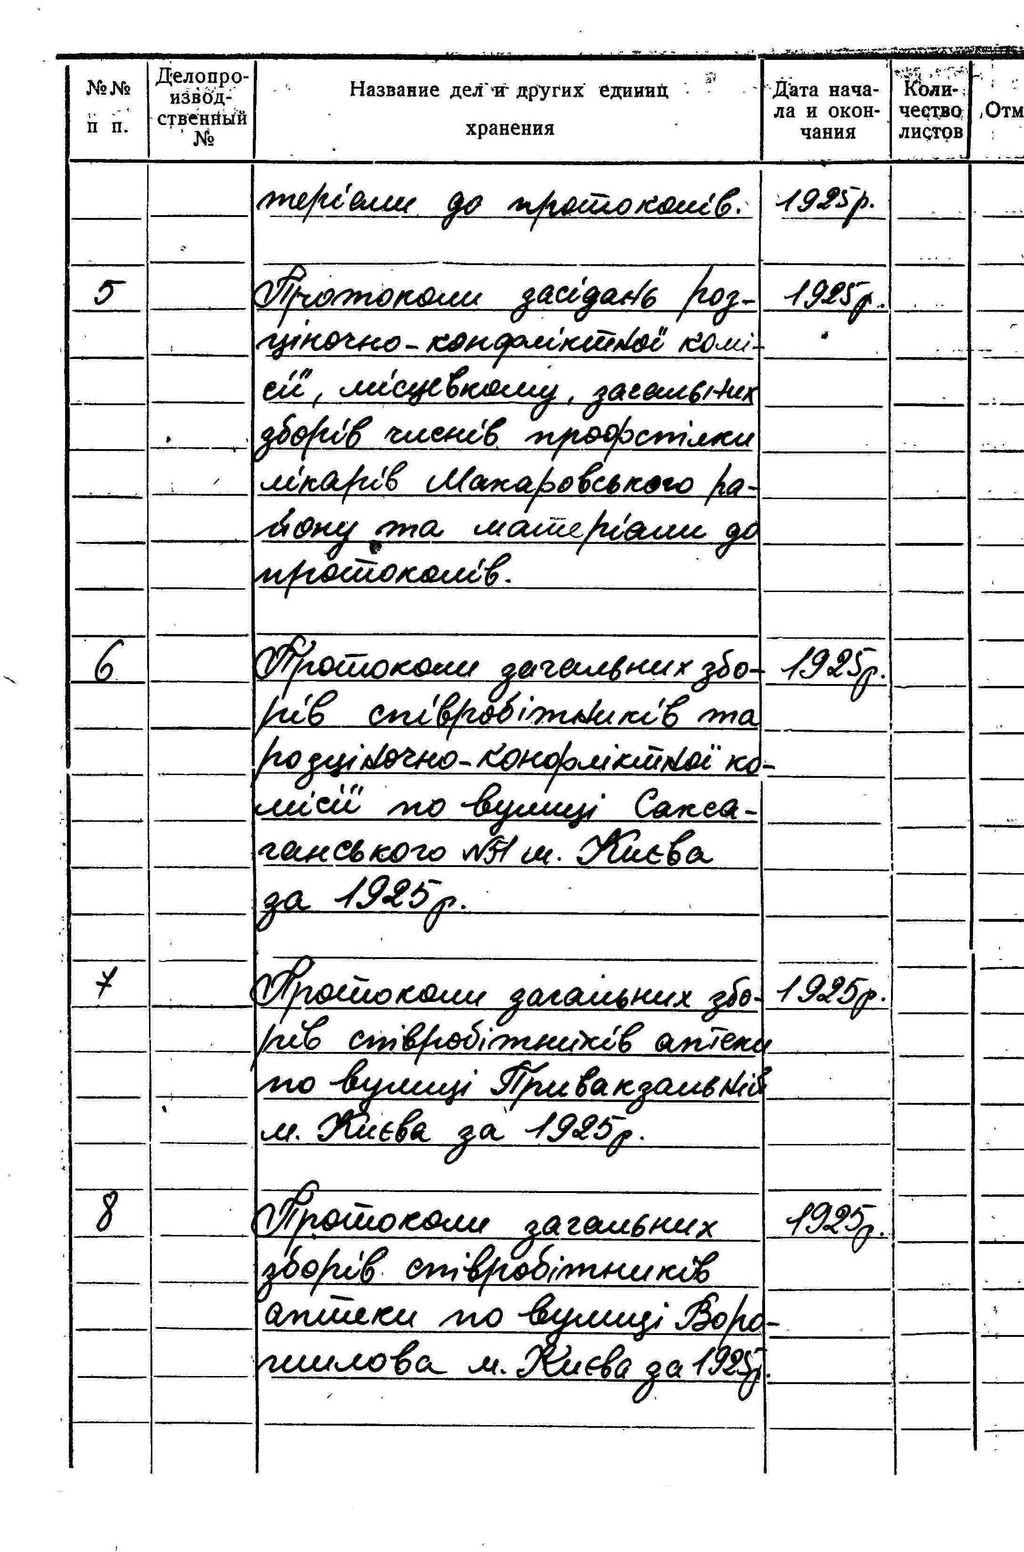 №№ п п. Делопроизводственный № Название дел и других единиц хранения Дата начала и окончания Количество листов Отм
теріали до протоколів. 1925р.
5 Протоколи засідань роз- 1925р.
ціночно-конфліктної комі-
сії, місцевкому, загальних
зборів членів профспілки
лікарів Макаровського ра-
йону та матеріали до
протоколів.
6 Протоколи загальних збо- 1925р.
рів співробітників та
розціночно-конфліктної ко-
місії по вулиці Сакса-
ганського №51 м. Києва
за 1925р.
7 Протоколи загальних збо- 1925р.
рів співробітників аптеки
по вулиці Привакзальній
м. Києва за 1925р.
8 Протоколи загальних 1925р.
зборів співробітників
аптеки по вулиці Воро-
шилова м. Києва за 1925р.